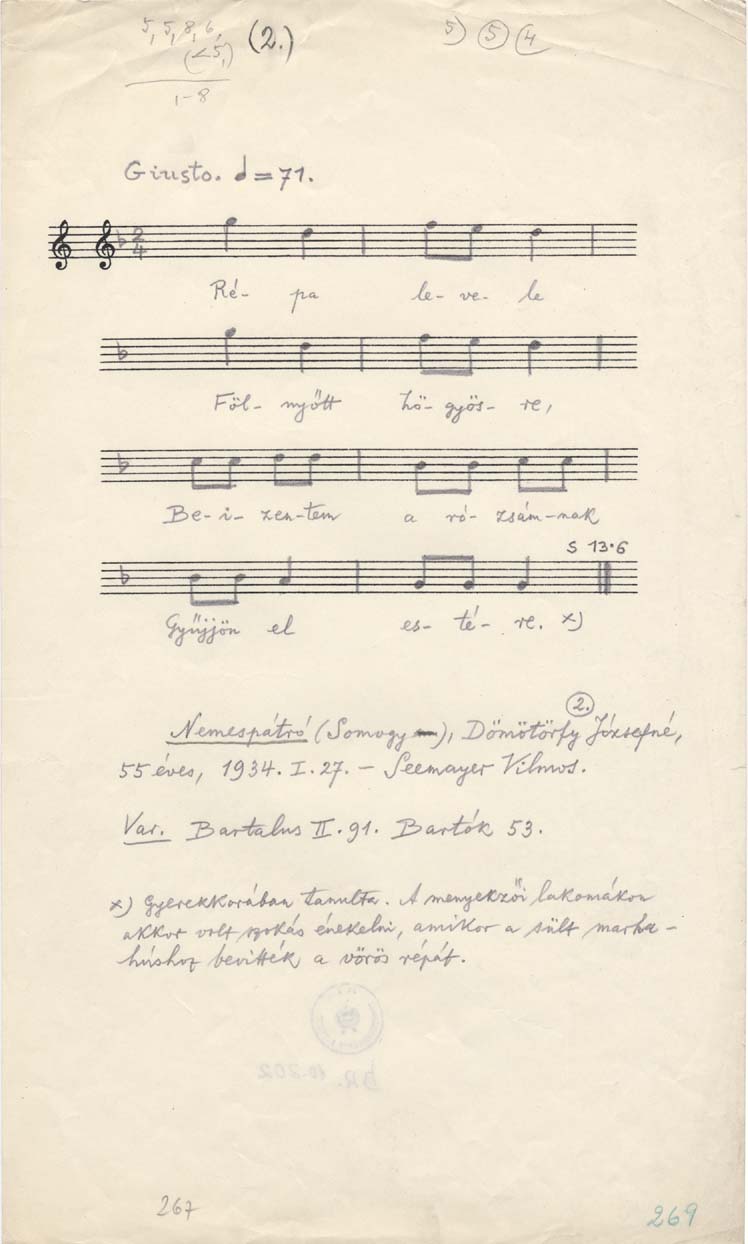 5, 5, 8, 6, (2.) 5) 5 4
(<5,)
1-8
Giusto. = 71.
2
4
Ré- pa le- ve- le
Föl- nyőtt hö- gyös- re,
Be- i- zen-tem a ró- zsám-nak
S 13·6
Gyűjjön el es- té- re. x)
2.
Nemespátró (Somogy), Dömötörfy Józsefné,
55 éves, 1934. I. 27. – Seemayer Vilmos.
Var. Bartalus II. 91. Bartók 53.
x) Gyerekkorában tanulta. A menyekzői lakomákon
akkor volt szokás énekelni, amikor a sült marha-
húshoz bevitték a vörös répát.
BR. 10.202
267
269